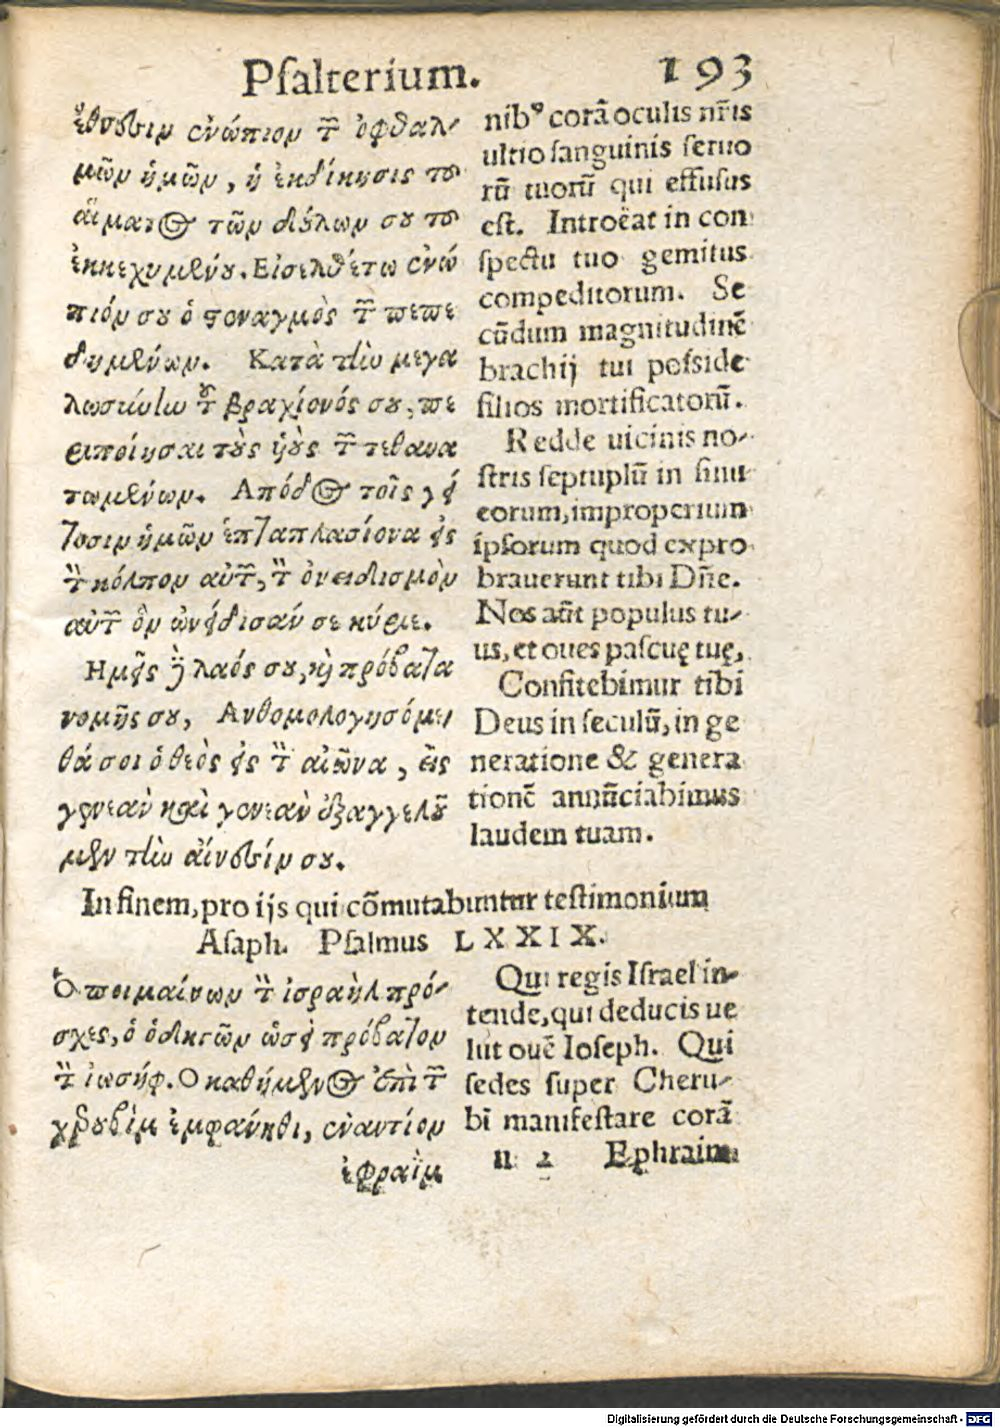 Psalterium. 193
ἔθνεσιν ἐνώπιον τῶν ὀφθαλ-
μῶν ἡμῶν, ἡ ἐκδίκησις τοῦ
αἵματος τῶν δούλων σου τοῦ
ἐκκεχυμένου. Εἰσελθέτω ἐνώ
πιόν σου ὁ στοναγμὸς τῶν πεπε
δημένων. Κατὰ τὴν μεγα
λωσύνην τοῦ βραχίονός σου, πε
ριποίησαι τοὺς ὑοὺς τῶν τεθανα
τωμένων. Απόδος τοῖς γεί
τοσιν ἡμῶν ἑπταπλασίονα εἰς
τὸν κόλπον αὐτῶν, τὸν ὀνειδισμὸν
αὐτῶν ὃν ὠνείδισάν σε κύριε.
Ημεῖς γὰρ λαός σου, καὶ πρόβατα
νομῆς σου, Ανθομολογησόμε
θά σοι ὁ θεὸς εἰς τὸν αἰῶνα, εἰς
γενεὰν καὶ γενεὰν ἐξαγγελοῦ
μεν τὴν αἴνεσίν σου.
nibꝰ corā oculis nr̄is
ultio sanguinis seruo
rū tuorū qui effusus
est. Introëat in con
spectu tuo gemitus
compeditorum. Se
cūdum magnitudinē
brachij tui posside
filios mortificatorū.
Redde uicinis no-
stris septuplū in sinu
eorum, improperium
ipsorum quod expro
brauerunt tibi Dn̄e.
Nos aūt populus tu-
us, et oues pascuę tuę,
Confitebimur tibi
Deus in seculū, in ge
neratione & genera
tionē annūciabimus
laudem tuam.
In finem, pro ijs qui cōmutabuntur testimonium
Asaph. Psalmus LXXIX.
Ὁ ποιμαίνων τὸν ἰσραὴλ πρό-
σχες, ὁ ὁδηγῶν ὡσεὶ πρόβατον
τὸν ἰωσήφ. Ο καθήμενος ἐπὶ τῶν
χερουβὶμ ἐμφάνηθι, ἐναντίον
ἐφραῒμ
Qui regis Israel in-
tende, qui deducis ue
lut ouē Ioseph. Qui
sedes super Cheru-
bī manifestare corā
n 2 Ephraim
Digitalisierung gefördert durch die Deutsche Forschungsgemeinschaft - DFG